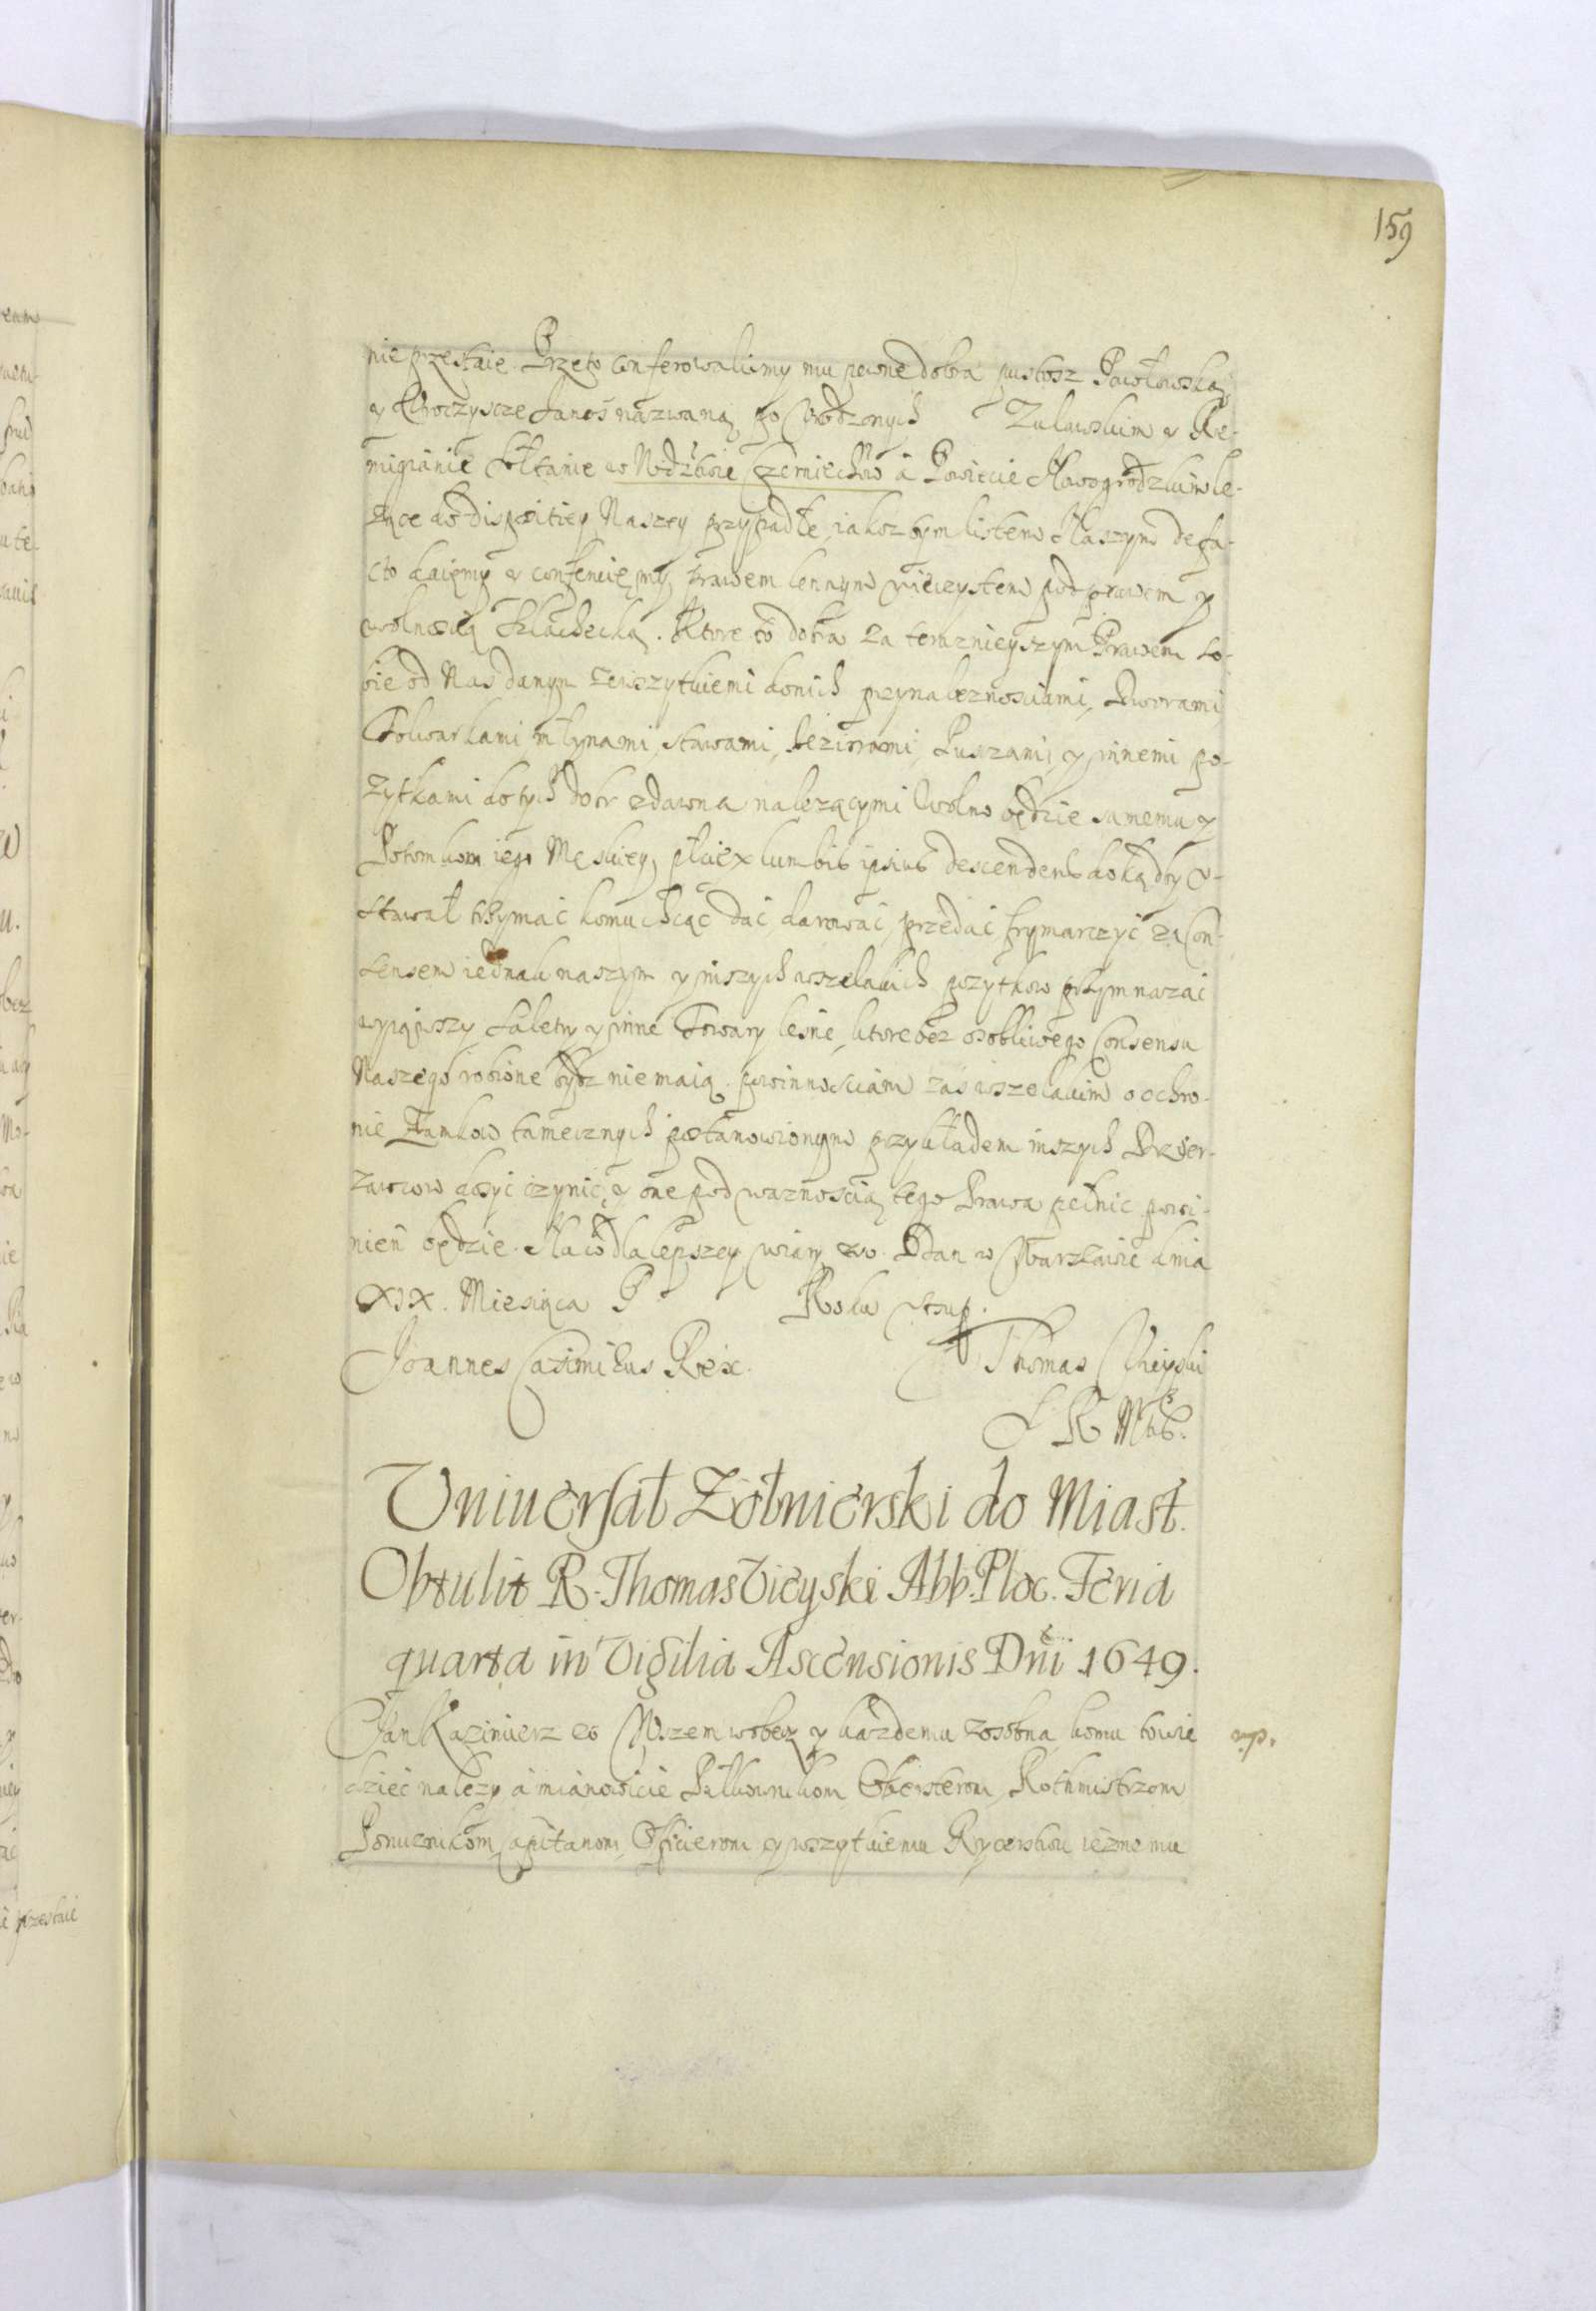 159
nie przestaie. Przeto conferowalismy mu pewne dobra pustosz Pawłowską
y Uroczyscze Janoś nazwaną, po Urodzonych Zulawskim y Re-
migianie Sołtanie w Wodztwie Czerniechow: á Powiecie Nowogrodzkim le-
zące do dispositiey Naszey przypadłe, iakoz tym listem Naszym de fa-
cto daięmy y conferuięmy, prawem lennym wieczystem pod prawem y
wolnoscią Szlachecką. Ktore to dobra za teraznieyszym Prawem so-
bie od Nas danym zewszytkiemi do nich przynaleznosciami, Dworami
Folwarkami młynami, stawami, Jeziorami, Puszami, y innemi po-
zytkami do tych dobr zdawna nalezącymi Wolno będzie samemu y
Potomkom iego Męskiey płci ex lumbis ipsius descendent: dokąd by
stawał trzymać komu chcąc dać, darować, przedać frymarczyć za Con-
sensem iednak naszym y inszych wszelakich pozytkow przymnazać
wyiąwszy Saletry y inne Towary leśne, ktore bez osobliwego Consensu
Naszego robione bydz niemaią. powinnosciam zas wszelakim o ochro-
nie Zamkow tamecznych postanowionym przykładem inszych Dzier-
zawcow dosyć czynić, y one pod waznoscią tego Prawa pełnić powi-
nien będzie. Na co dla lepszey wiary etc. Dan w Warszawie dnia
XIX. Miesiąca Roku ut sup.
Joannes Casimirus Rex. Thomas Uieyski
S R Mtis.
Uniuersał Zołnierski do Miast.
Obtulit R. Thomas Vieyski Abb. Ploc. Feria
quarta in Vigilia Ascensionis Dni 1649.
Jan Kazimierz etc Wszem wobec y kazdemu zosobna komu to wie
dzieć nalezy á mianowicie Pułkownikom Obersterom, Rothmistrzom
Porucznikom, Capitanom, Officierom y wszytkiemu Rycerstwu iezne mu